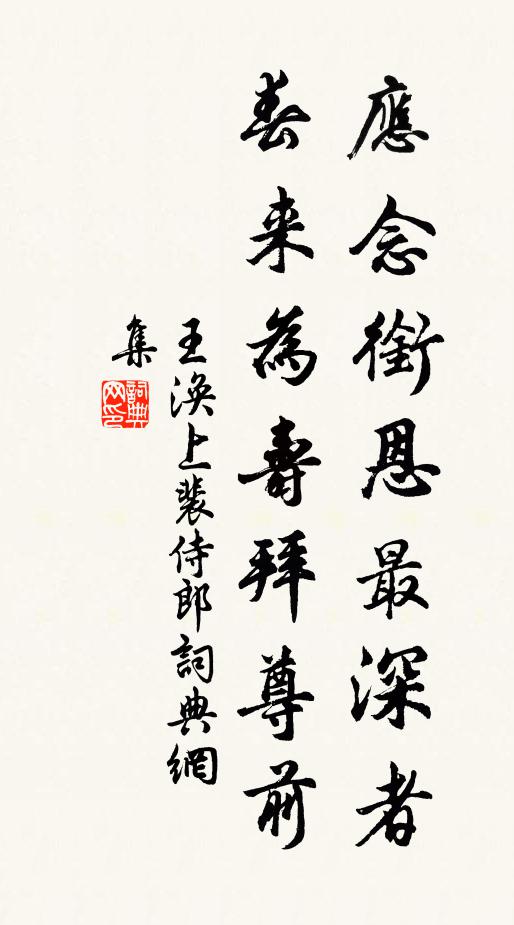 應念銜恩最深者
春来為壽拜尊前
王渙上裴侍郎詞典網
集
詞典
网印